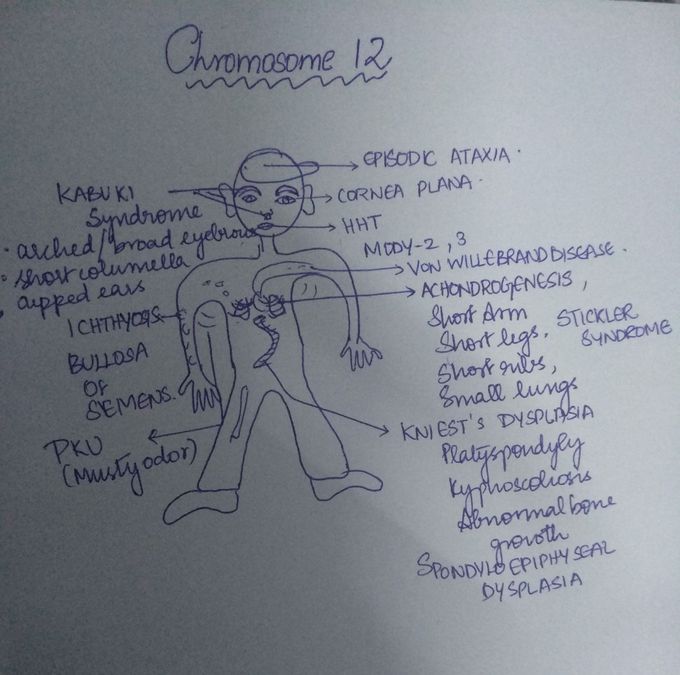 Chromosome 12
EPISODIC ATAXIA.
CORNEA PLANA.
HHT
MODY-2, 3
VON WILLEBRAND DISEASE.
ACHONDROGENESIS,
Short Arm
Short legs.
Short ribs,
Small lungs
STICKLER
SYNDROME
KNIEST'S DYSPLASIA
Platyspondyly
Kyphoscoliosis
Abnormal bone
growth
SPONDYLOEPIPHYSEAL
DYSPLASIA
KABUKI
Syndrome
• arched/broad eyebrows
• short columella
• cupped ears
ICHTHYOSIS
BULLOSA
OF
SIEMENS.
PKU
(Musty odor)